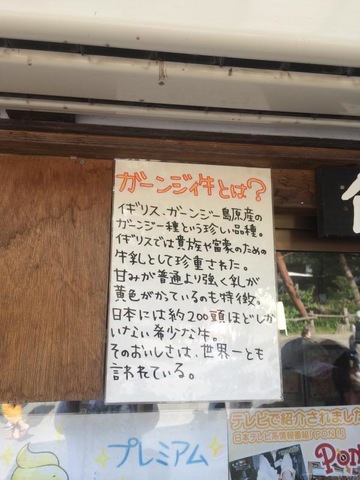 ガーンジィ牛とは?
イギリス、ガーンジー島原産の
ガーンジー種という珍しい品種。
イギリスでは貴族や富豪のための
牛乳として珍重された。
甘みが普通より強く乳が
黄色がかっているのも特徴。
日本には約200頭ほどしか
いない希少な牛。
そのおいしさは、世界一とも
言われている。
プレミアム
テレビで紹介されました
日本テレビ系情報番組「PON!」
PON